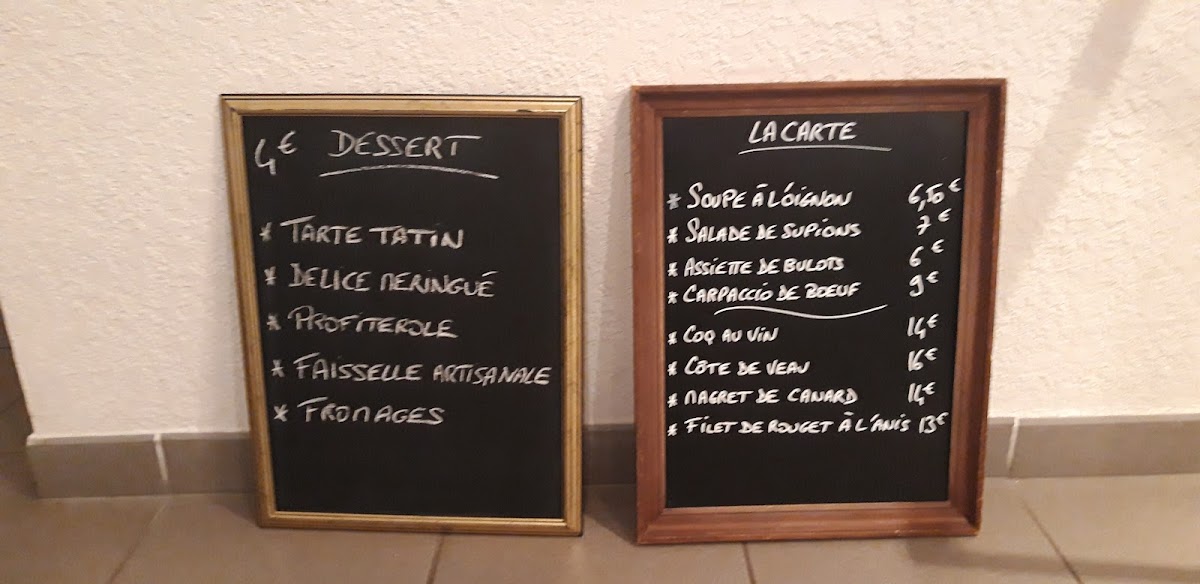 4€ DESSERT
* TARTE TATIN
* DELICE MERINGUÉ
* PROFITEROLE
* FAISSELLE ARTISANALE
* FROMAGES
LA CARTE
* SOUPE À L'OIGNON 6,50€
* SALADE DE SUPIONS 7€
* ASSIETTE DE BULOTS 6€
* CARPACCIO DE BOEUF 9€
* COQ AU VIN 14€
* CÔTE DE VEAU 16€
* MAGRET DE CANARD 14€
* FILET DE ROUGET À L'ANIS 13€